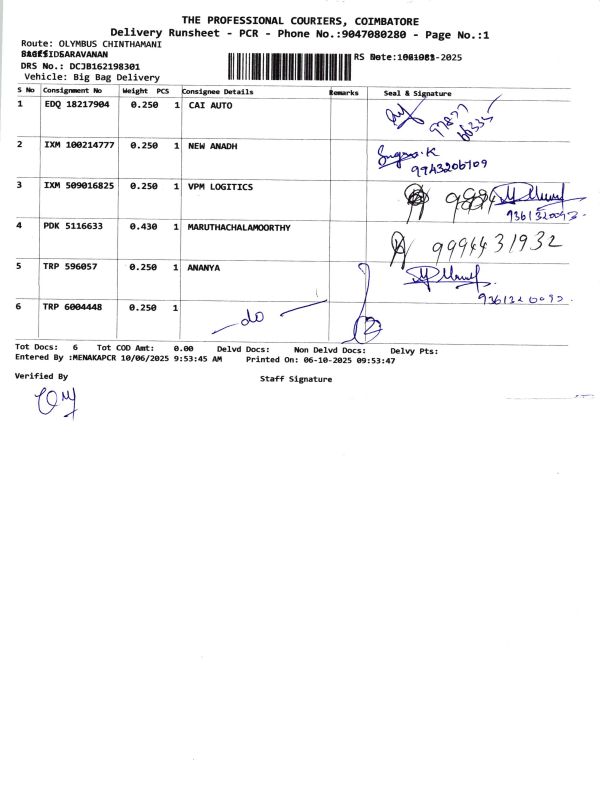 THE PROFESSIONAL COURIERS, COIMBATORE
Delivery Runsheet - PCR - Phone No.:9047080280 - Page No.:1
Route: OLYMBUS CHINTHAMANI
SARAVANAN RS Date: -2025
DRS No.: DCJB162198301
Vehicle: Big Bag Delivery
S No Consignment No Weight PCS Consignee Details Remarks Seal & Signature
1 EDQ 18217904 0.250 1 CAI AUTO
2 IXM 100214777 0.250 1 NEW ANADH
9943206709
3 IXM 509016825 0.250 1 VPM LOGITICS
9361320093
4 PDK 5116633 0.430 1 MARUTHACHALAMOORTHY 9994431932
5 TRP 596057 0.250 1 ANANYA
6 TRP 6004448 0.250 1 —do—
Tot Docs: 6 Tot COD Amt: 0.00 Delvd Docs: Non Delvd Docs: Delvy Pts:
Entered By :MENAKAPCR 10/06/2025 9:53:45 AM Printed On: 06-10-2025 09:53:47
Verified By Staff Signature